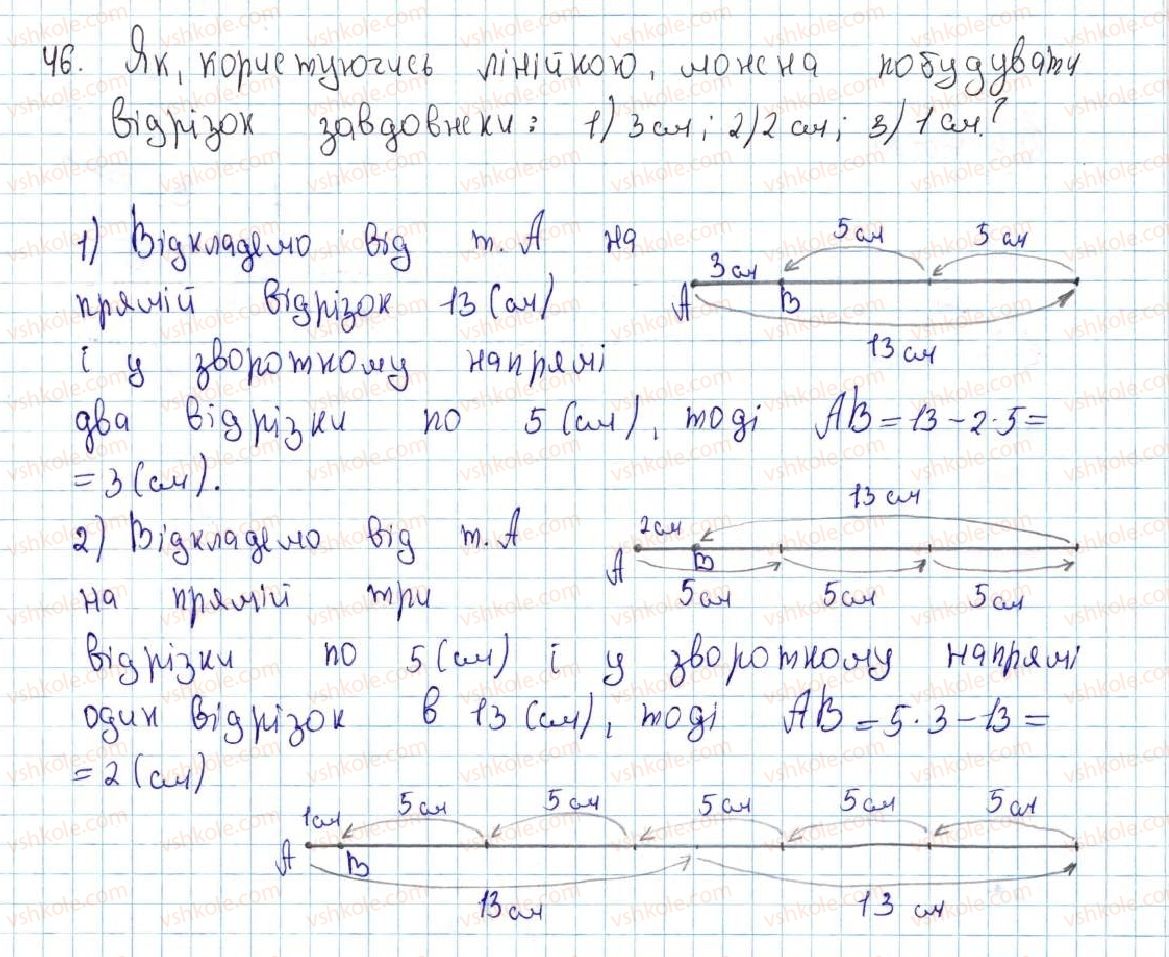 46. Як, користуючись лінійкою, можна побудувати
відрізок завдовжки: 1) 3 см; 2) 2 см; 3) 1 см?
1) Відкладемо від т. А на
прямій відрізок 13 (см)
і у зворотному напрямі
два відрізки по 5 (см), тоді АВ = 13 - 2·5 =
= 3 (см).
3 см 5 см 5 см
А В
13 см
2) Відкладемо від т. А
на прямій три
відрізки по 5 (см) і у зворотному напрямі
один відрізок в 13 (см), тоді АВ = 5·3 - 13 =
= 2 (см)
13 см
2 см
А В
5 см 5 см 5 см
1 см 5 см 5 см 5 см 5 см 5 см
А В
13 см 13 см
vshkole.com